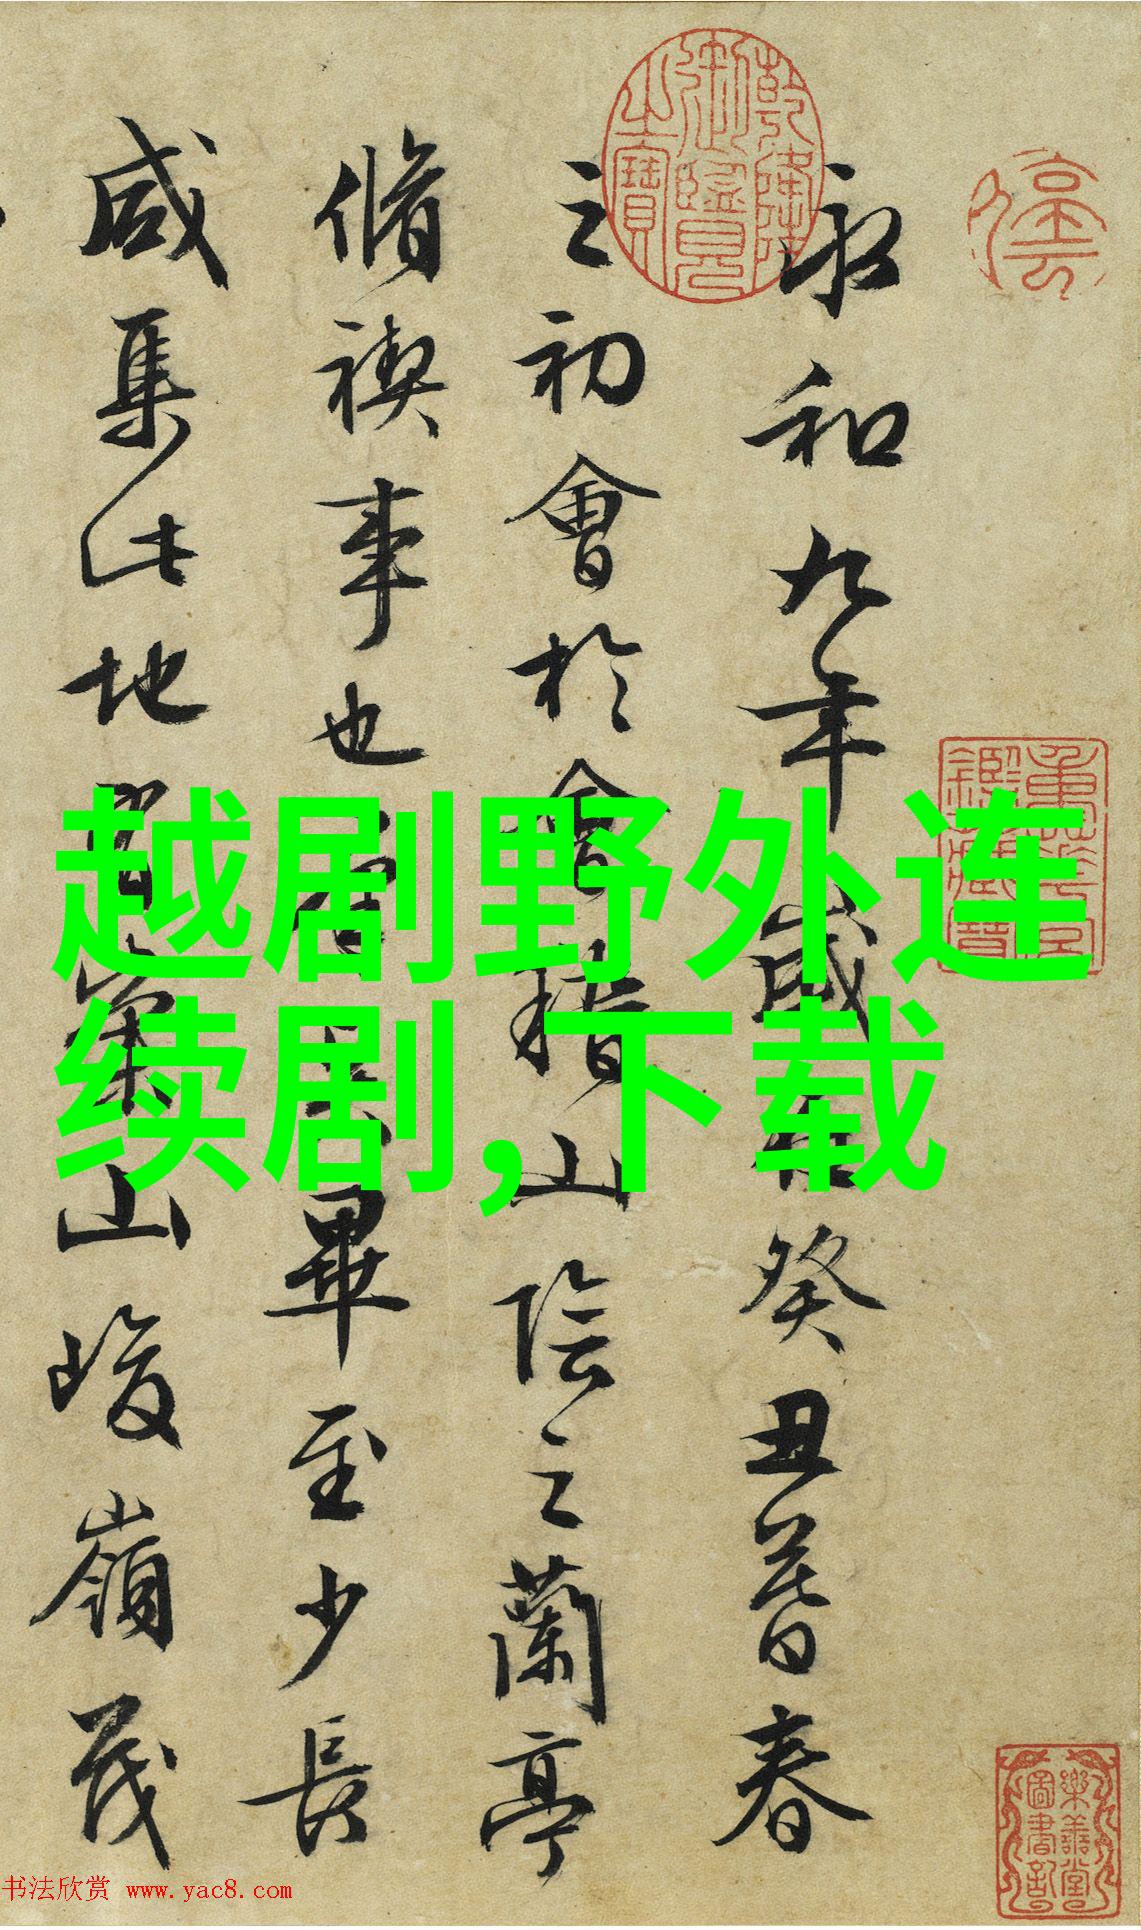 永和九年歲在癸丑暮春
之初會於會稽山陰之蘭亭
脩禊事也羣賢畢至少長
咸集此地有崇山峻嶺茂
乾隆御覽之寶
樂善堂圖書記
越剧野外连
续剧,下载
书法欣赏 www.yac8.com